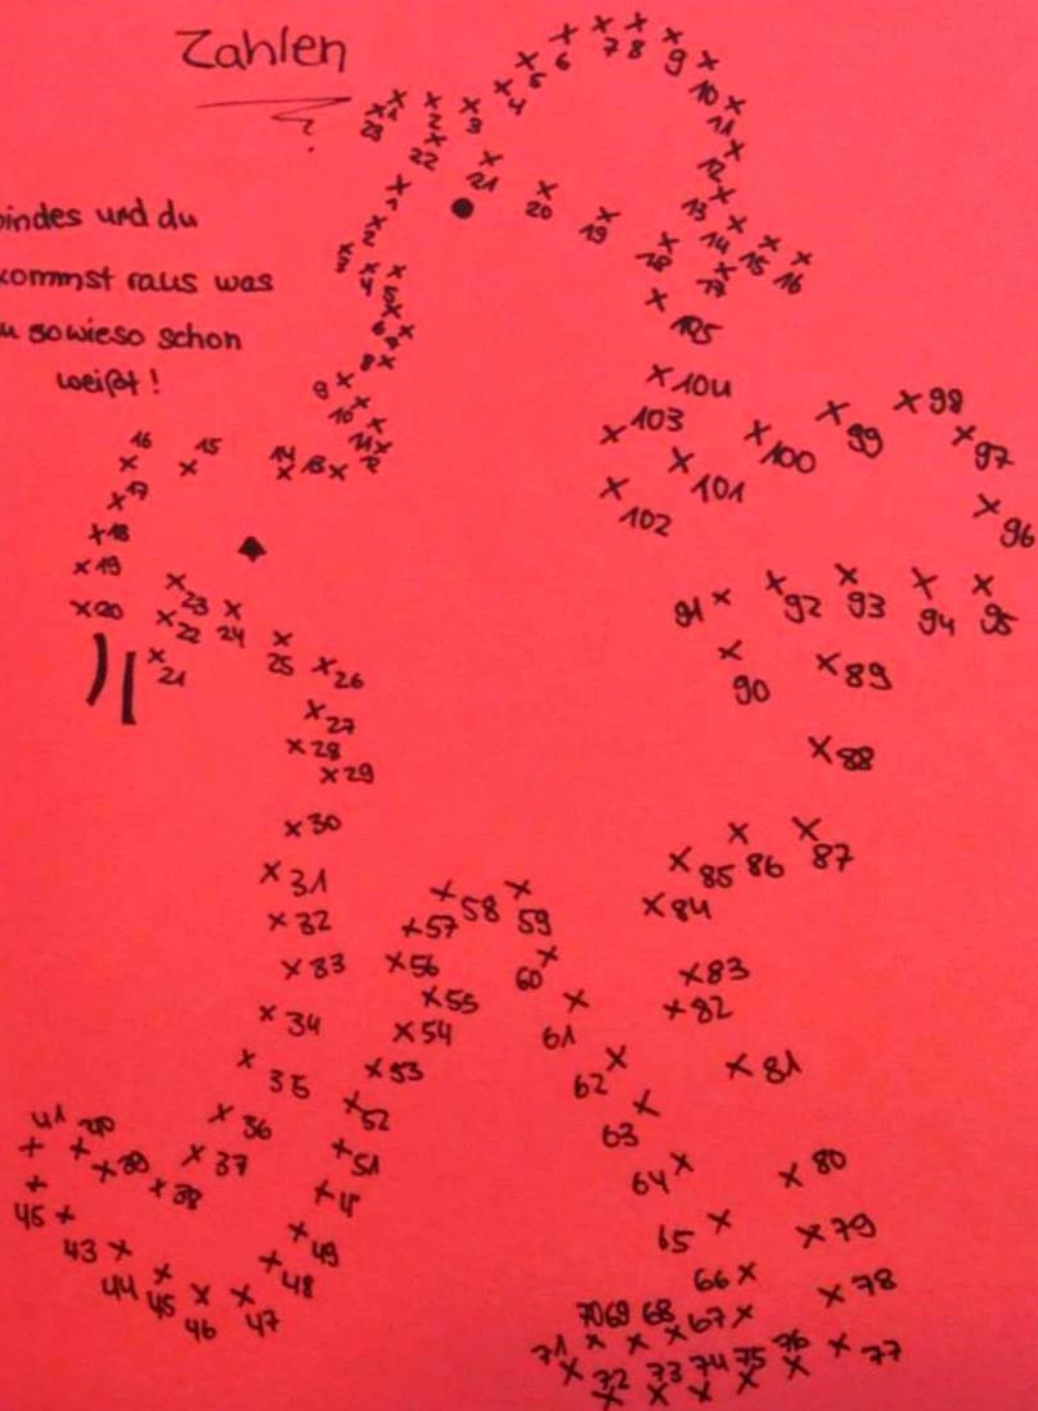 Zahlen
bindes und du
kommst raus was
u sowieso schon
weißt!
1
2
3
4
5
6
7
8
9
10
11
12
13
14
15
16
17
18
19
20
21
22
23
1
2
3
4
5
6
7
8
9
10
11
12
13
14
15
16
17
18
19
20
21
22
23
24
25
26
27
28
29
30
31
32
33
34
35
36
37
38
39
40
41
45
43
44
45
46
47
48
49
51
52
53
54
55
56
57
58
59
60
61
62
63
64
65
66
67
68
69
70
71
72
73
74
75
76
77
78
79
80
81
82
83
84
85
86
87
88
89
90
91
92
93
94
95
96
97
98
99
100
101
102
103
104
105